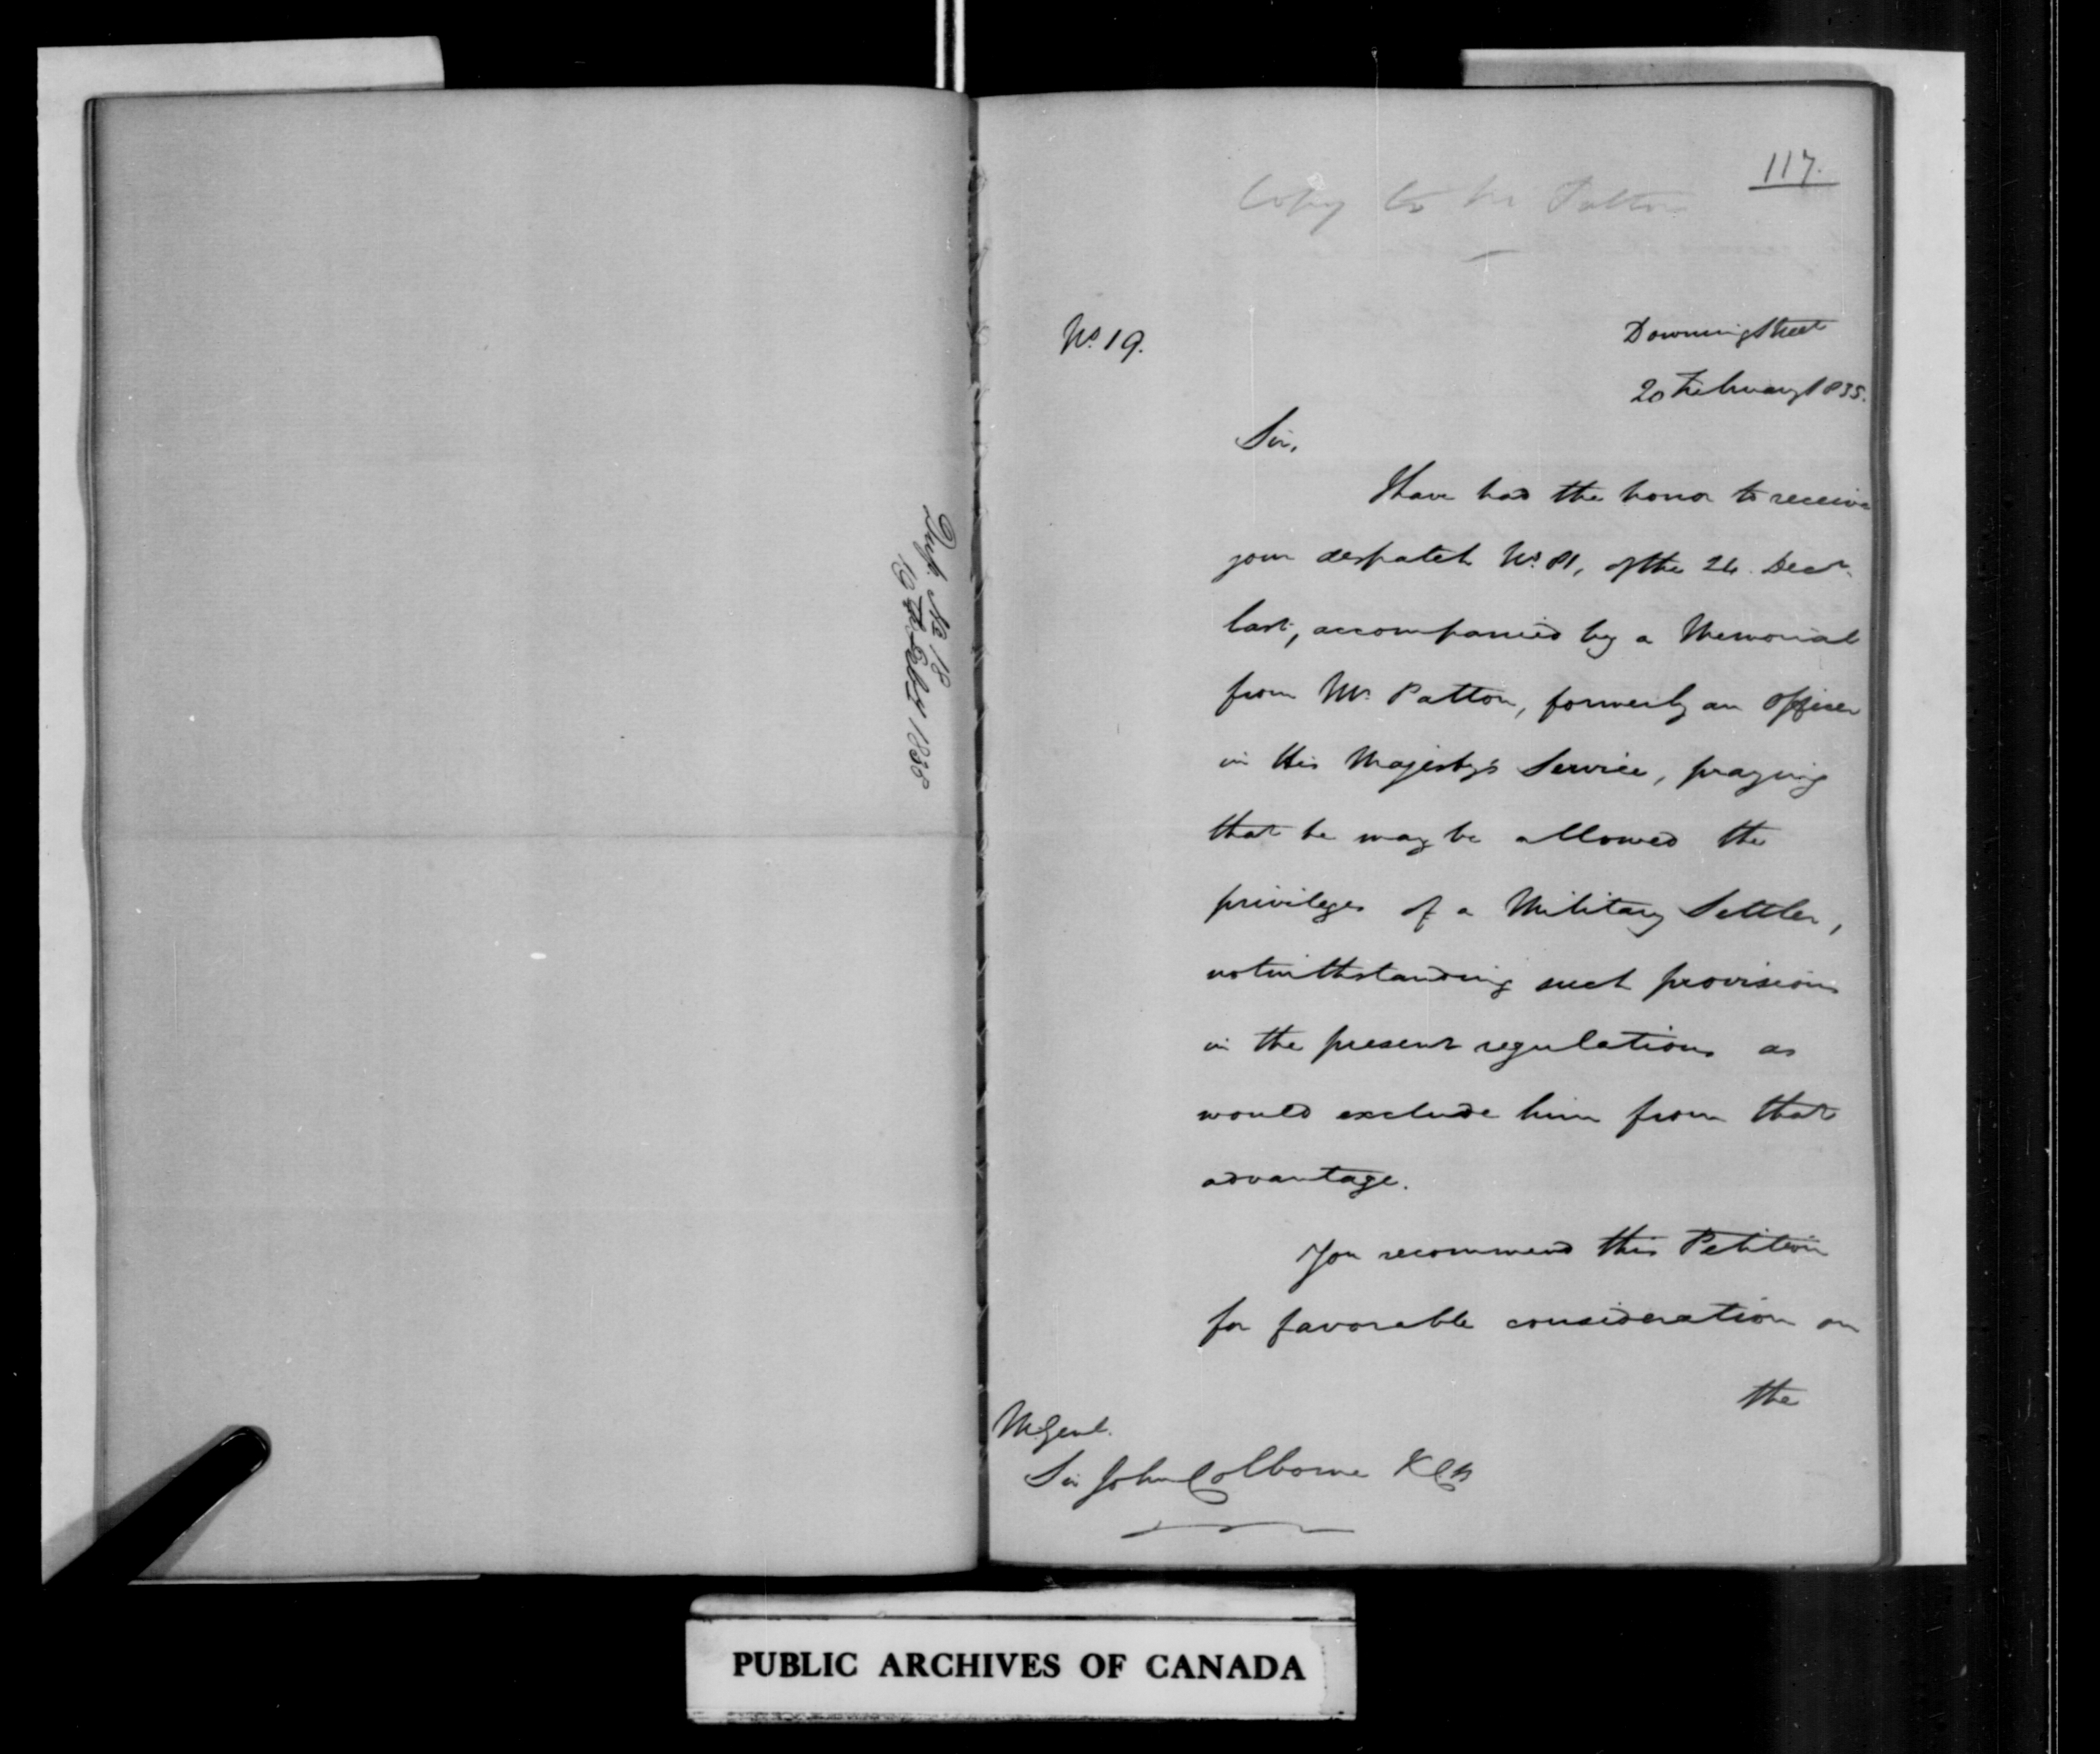 Dup. No 18
16th Feby 1835
117.
Copy to Mr Patton
No. 19.
Downing Street
20 February 1835.
Sir,
I have had the honor to receive
your despatch No. 81, of the 24 Decr.
last, accompanied by a Memorial
from Mr. Patton, formerly an Officer
in His Majesty's Service, praying
that he may be allowed the
privileges of a Military Settler,
notwithstanding such provisions
in the present regulations as
would exclude him from that
advantage.
You recommend this Petition
for favorable consideration on
the
M. Genl.
Sir John Colborne KCB
PUBLIC ARCHIVES OF CANADA